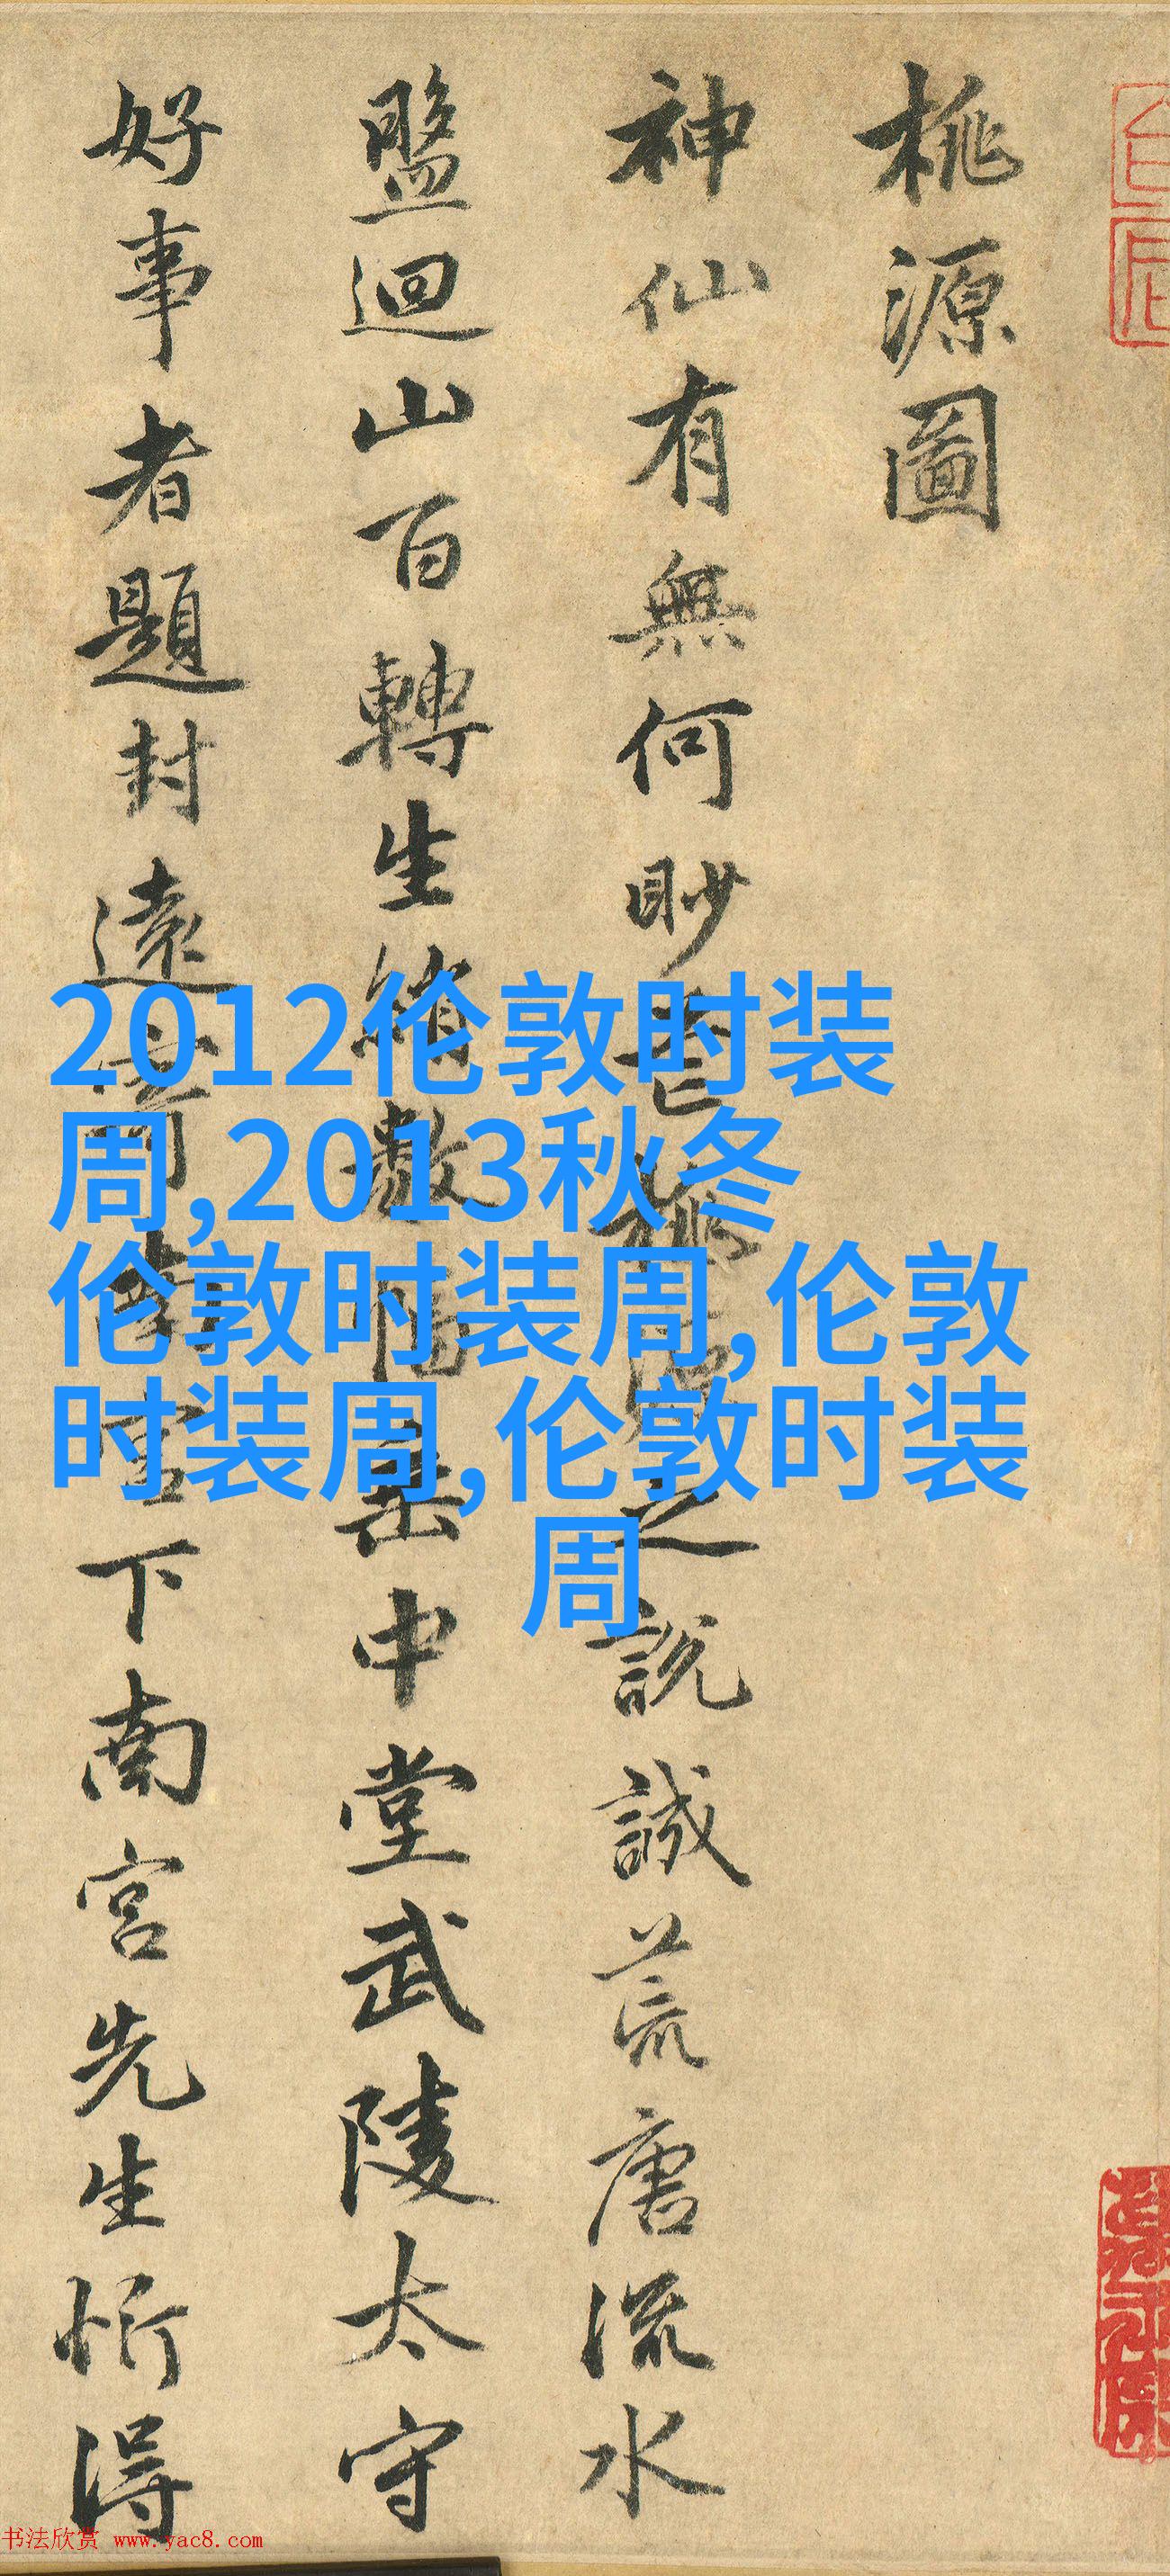 桃源圖
神仙有無何眇芒桃源之說誠荒唐流水
盤迴山百轉生綃數幅垂中堂武陵太守
好事者題封遠寄南宮下南宮先生忻得
2012伦敦时装
周,2013秋冬
伦敦时装周,伦敦
时装周,伦敦时装
周
书法欣赏 www.yac8.com